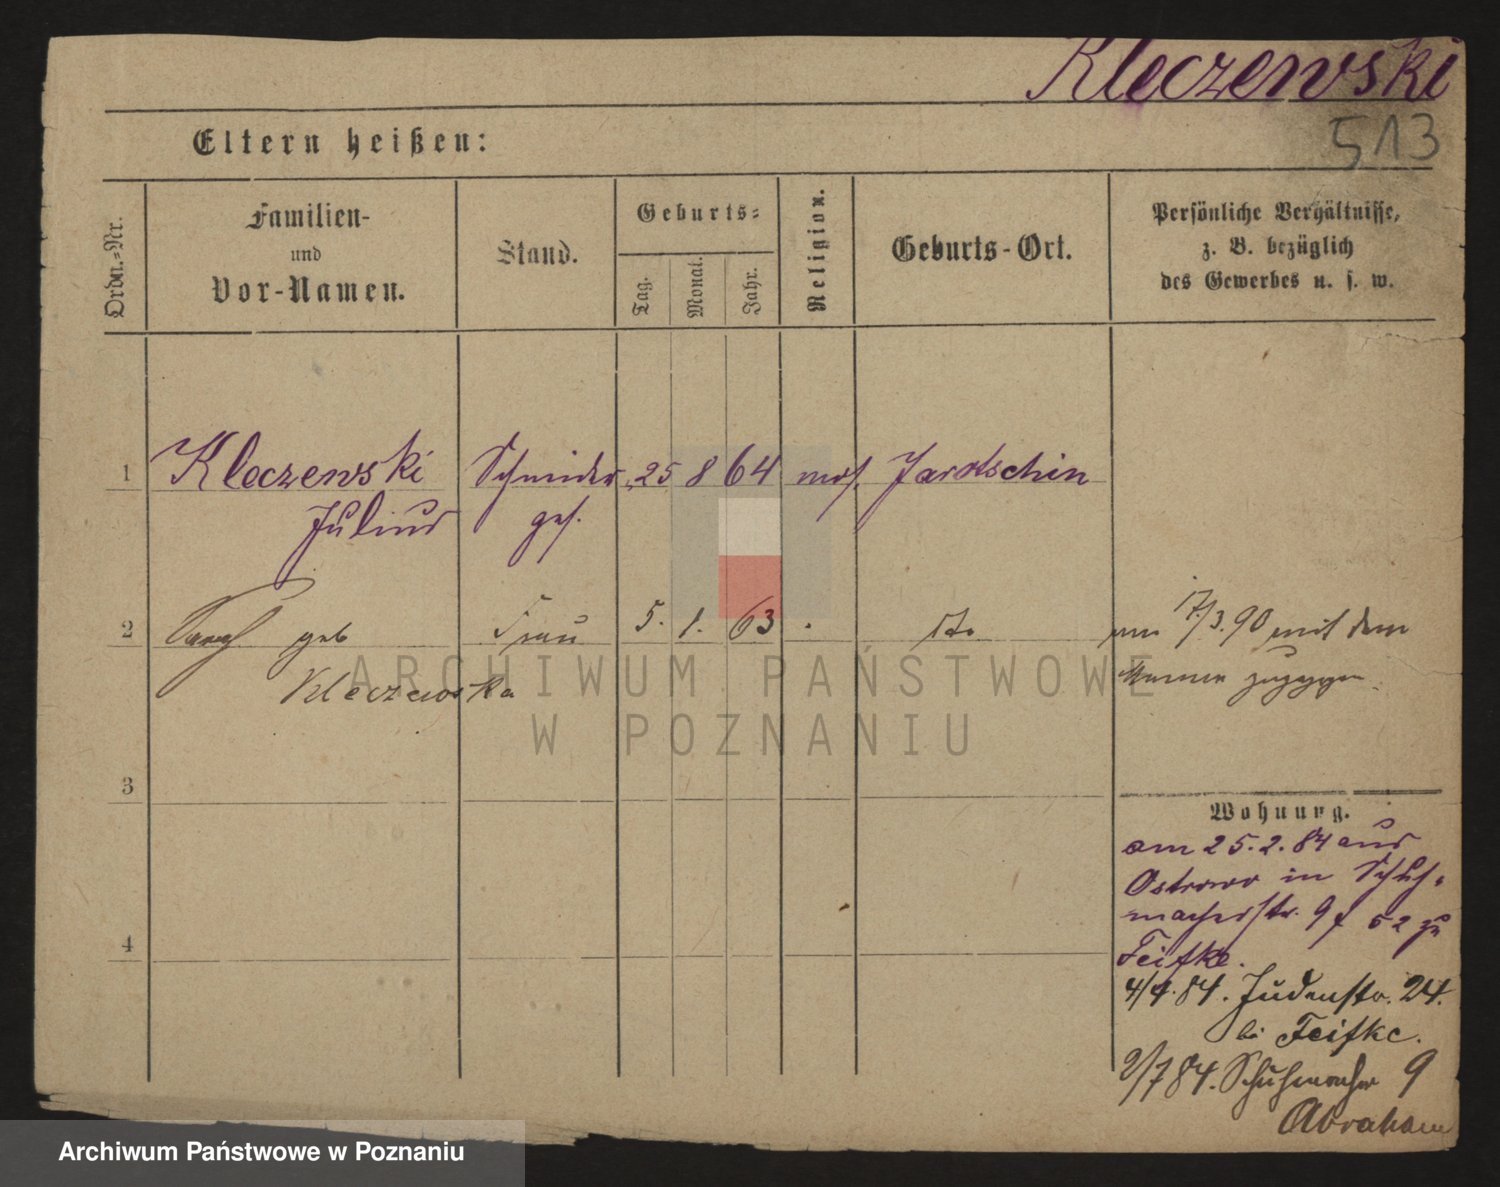 Kleczewski
513
Eltern heißen:
Ordn.-Nr.
Familien-
und
Vor-Namen.
Stand.
Geburts-
Tag.
Monat.
Jahr.
Religion.
Geburts-Ort.
Persönliche Verhältnisse,
z. B. bezüglich
des Gewerbes u. s. w.
1 Kleczewski Schneider 25 8 64 mos. Jarotschin
Julius ges.
2 Sara geb Frau 5. 1. 63 . do
Kleczewska
am 17/3.90 mit dem
Manne zugezogen.
3
4
Wohnung.
am 25.2.84 aus
Ostrowo in Schuh-
macherstr. 9 52 zu
Feifke.
4/4.84. Judenstr. 24.
bei Feifke.
2/7 84. Schuhmacher 9
Abraham
ARCHIWUM PAŃSTWOWE
W POZNANIU
Archiwum Państwowe w Poznaniu